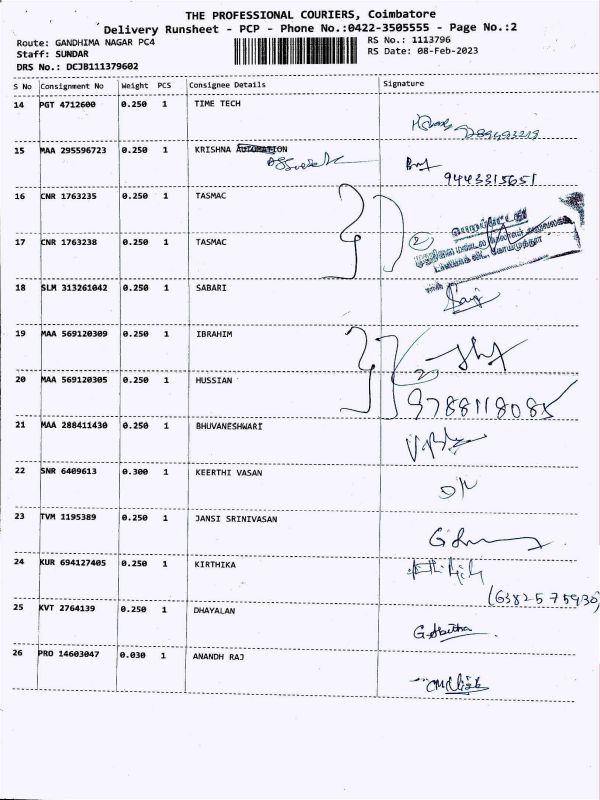 THE PROFESSIONAL COURIERS, Coimbatore
Delivery Runsheet - PCP - Phone No.:0422-3505555 - Page No.:2
Route: GANDHIMA NAGAR PC4 RS No.: 1113796
Staff: SUNDAR RS Date: 08-Feb-2023
DRS No.: DCJB111379602
S No Consignment No Weight PCS Consignee Details Signature
14 PGT 4712600 0.250 1 TIME TECH
15 MAA 295596723 0.250 1 KRISHNA AUTOMATION
9443315651
16 CNR 1763235 0.250 1 TASMAC
17 CNR 1763238 0.250 1 TASMAC
2
18 SLM 313261042 0.250 1 SABARI
19 MAA 569120309 0.250 1 IBRAHIM
2
20 MAA 569120305 0.250 1 HUSSIAN
9788118085
21 MAA 288411430 0.250 1 BHUVANESHWARI
22 SNR 6409613 0.300 1 KEERTHI VASAN
23 TVM 1195389 0.250 1 JANSI SRINIVASAN
24 KUR 694127405 0.250 1 KIRTHIKA
(6382575930)
25 KVT 2764139 0.250 1 DHAYALAN
26 PRO 14603047 0.030 1 ANANDH RAJ